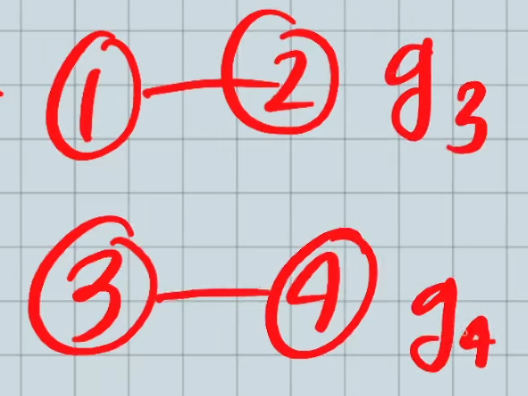 1 2 g3
3 4 g4